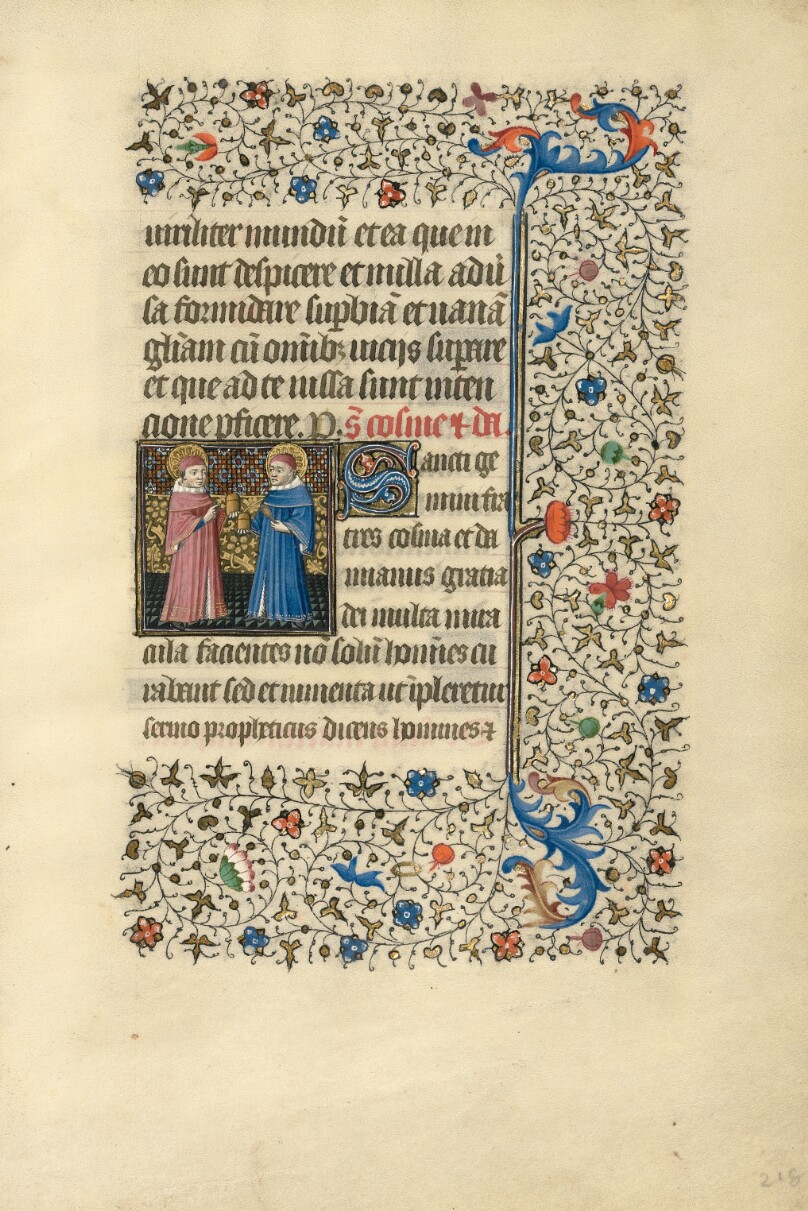 uiriliter mundū et ea que in
eo sunt despicere et nulla aduī
sa formidare supbiā et uanā
gliam cū omībꝫ uicijs supare
et que ad te iussa sunt inten
cione pficere. P. s̄ cosme & da.
Sancti ge
mini fra
tres cosma et da
mianus gratia
dei multa mira
cula facientes nō solū homīes cu
rabant sed et iumenta ut īpleretur
sermo propheticus dicens homines &
218